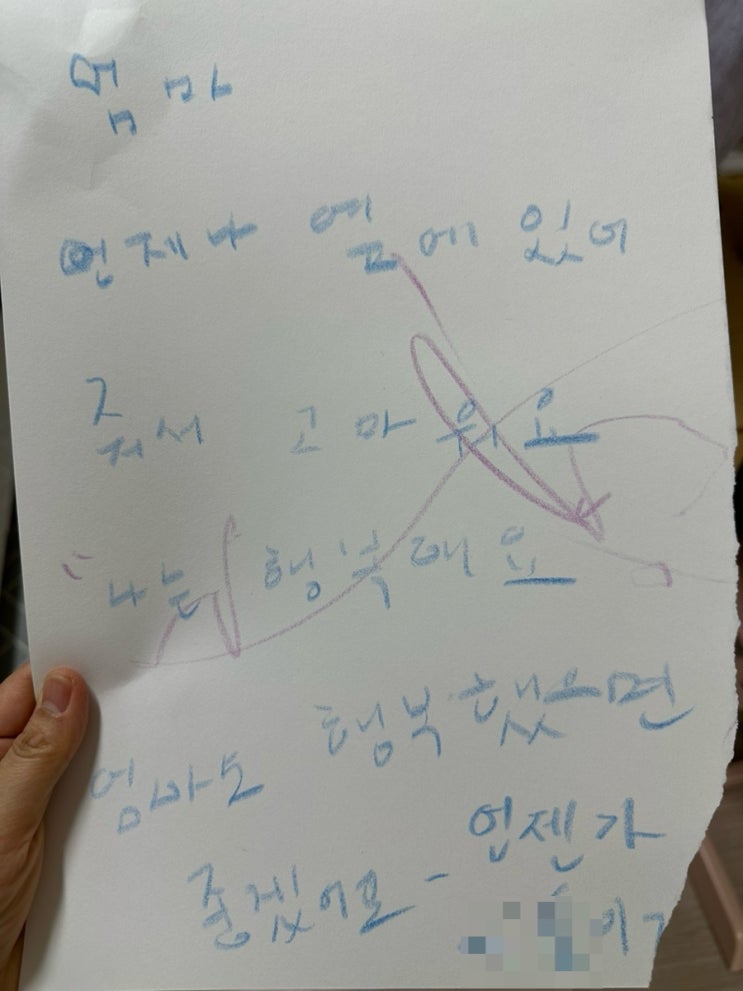 엄마
언제나 옆에 있어
줘서 고마워요
나는 행복해요
엄마도 행복했으면
좋겠어요- 언젠가